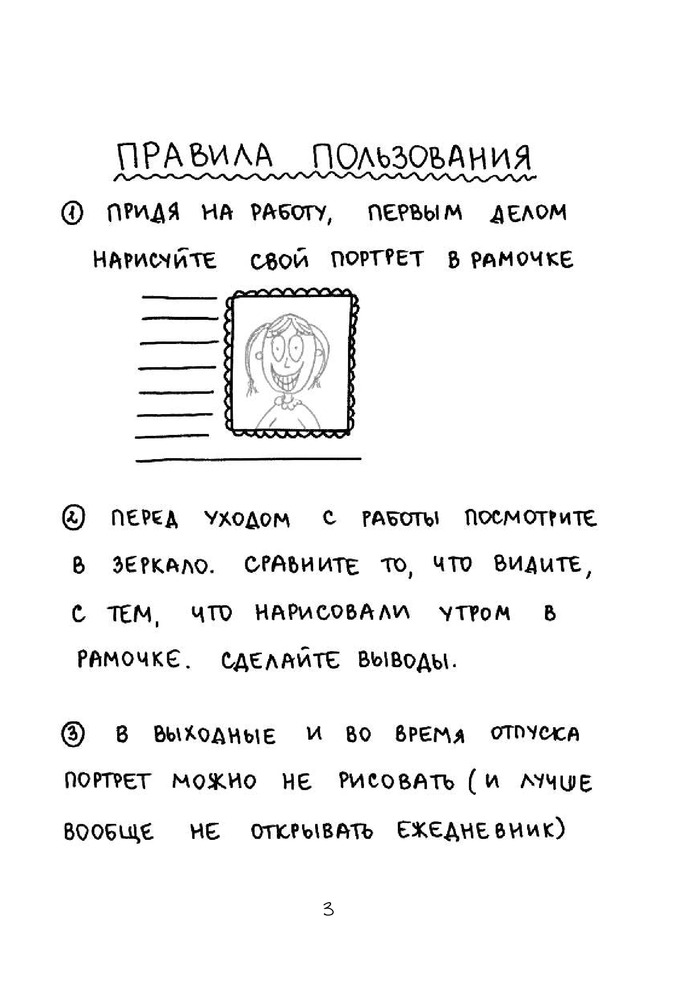 ПРАВИЛА ПОЛЬЗОВАНИЯ
① ПРИДЯ НА РАБОТУ, ПЕРВЫМ ДЕЛОМ
НАРИСУЙТЕ СВОЙ ПОРТРЕТ В РАМОЧКЕ
② ПЕРЕД УХОДОМ С РАБОТЫ ПОСМОТРИТЕ
В ЗЕРКАЛО. СРАВНИТЕ ТО, ЧТО ВИДИТЕ,
С ТЕМ, ЧТО НАРИСОВАЛИ УТРОМ В
РАМОЧКЕ. СДЕЛАЙТЕ ВЫВОДЫ.
③ В ВЫХОДНЫЕ И ВО ВРЕМЯ ОТПУСКА
ПОРТРЕТ МОЖНО НЕ РИСОВАТЬ (И ЛУЧШЕ
ВООБЩЕ НЕ ОТКРЫВАТЬ ЕЖЕДНЕВНИК)
3